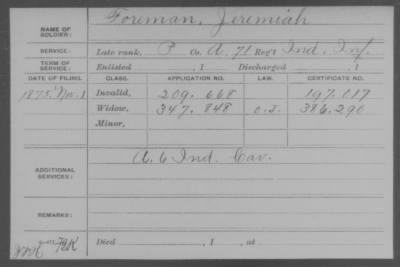 NAME OF SOLDIER: Foreman, Jeremiah
SERVICE: Late rank, P Co. A, 71 Reg't Ind. Inf.
TERM OF SERVICE: Enlisted , 1 Discharged , 1
DATE OF FILING. CLASS. APPLICATION NO. LAW. CERTIFICATE NO.
1875 Nov. 1 Invalid, 209.668 197.017
Widow, 347.848 386.290
Minor,
ADDITIONAL SERVICES: A. 6 Ind. Cav.
REMARKS:
Died , 1 , at